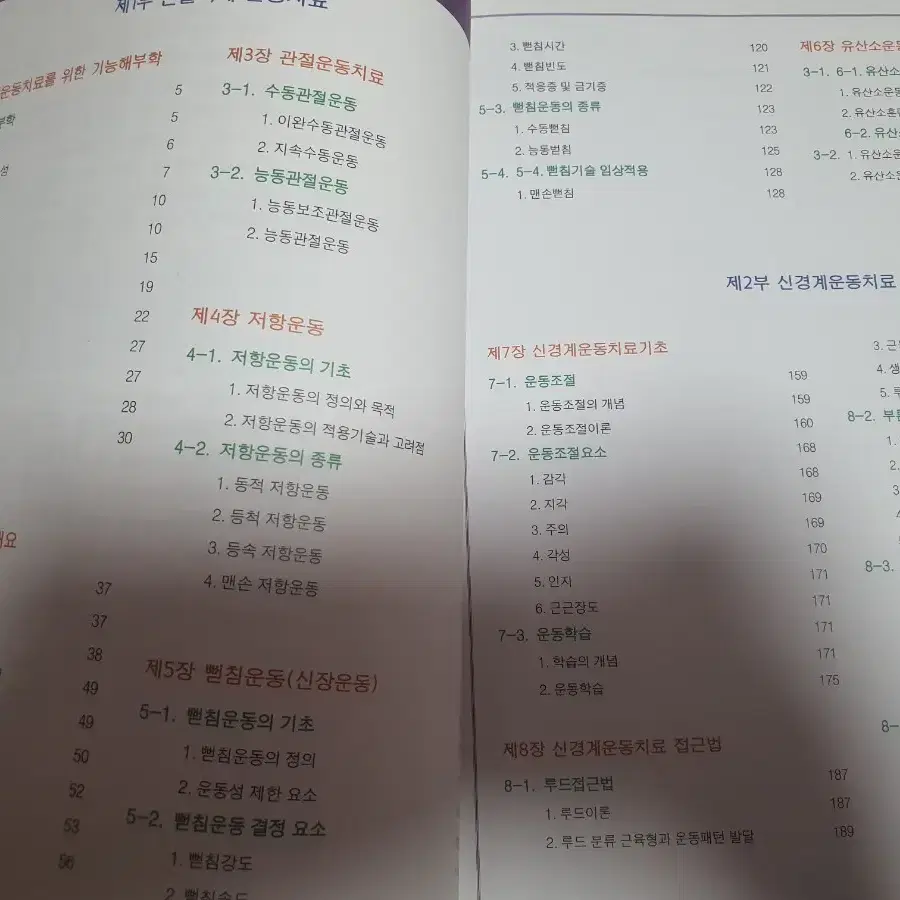 운동치료를 위한 기능해부학
5
5
6
7
10
10
15
19
22
27
27
28
30
37
37
38
49
49
50
52
53
56
제3장 관절운동치료
3-1. 수동관절운동
1. 이완수동관절운동
2. 지속수동운동
3-2. 능동관절운동
1. 능동보조관절운동
2. 능동관절운동
제4장 저항운동
4-1. 저항운동의 기초
1. 저항운동의 정의와 목적
2. 저항운동의 적용기술과 고려점
4-2. 저항운동의 종류
1. 동적 저항운동
2. 등척 저항운동
3. 등속 저항운동
4. 맨손 저항운동
제5장 뻗침운동(신장운동)
5-1. 뻗침운동의 기초
1. 뻗침운동의 정의
2. 운동성 제한 요소
5-2. 뻗침운동 결정 요소
1. 뻗침강도
2. 뻗침속도
3. 뻗침시간 120
4. 뻗침빈도 121
5. 적응증 및 금기증 122
5-3. 뻗침운동의 종류 123
1. 수동뻗침 123
2. 능동벋침 125
5-4. 5-4. 뻗침기술 임상적용 128
1. 맨손뻗침 128
제6장 유산소운동
3-1. 6-1. 유산소
1. 유산소운동
2. 유산소훈련
6-2. 유산소
3-2. 1. 유산소운
2. 유산소운
제2부 신경계운동치료
제7장 신경계운동치료기초
7-1. 운동조절 159
1. 운동조절의 개념 159
2. 운동조절이론 160
7-2. 운동조절요소 168
1. 감각 168
2. 지각 169
3. 주의 169
4. 각성 170
5. 인지 171
6. 근긴장도 171
7-3. 운동학습 171
1. 학습의 개념 171
2. 운동학습 175
제8장 신경계운동치료 접근법
8-1. 루드접근법 187
1. 루드이론 187
2. 루드 분류 근육형과 운동패턴 발달 189
3. 근
4. 생
5. 루
8-2.
1.
2.
3
8-3.
8-